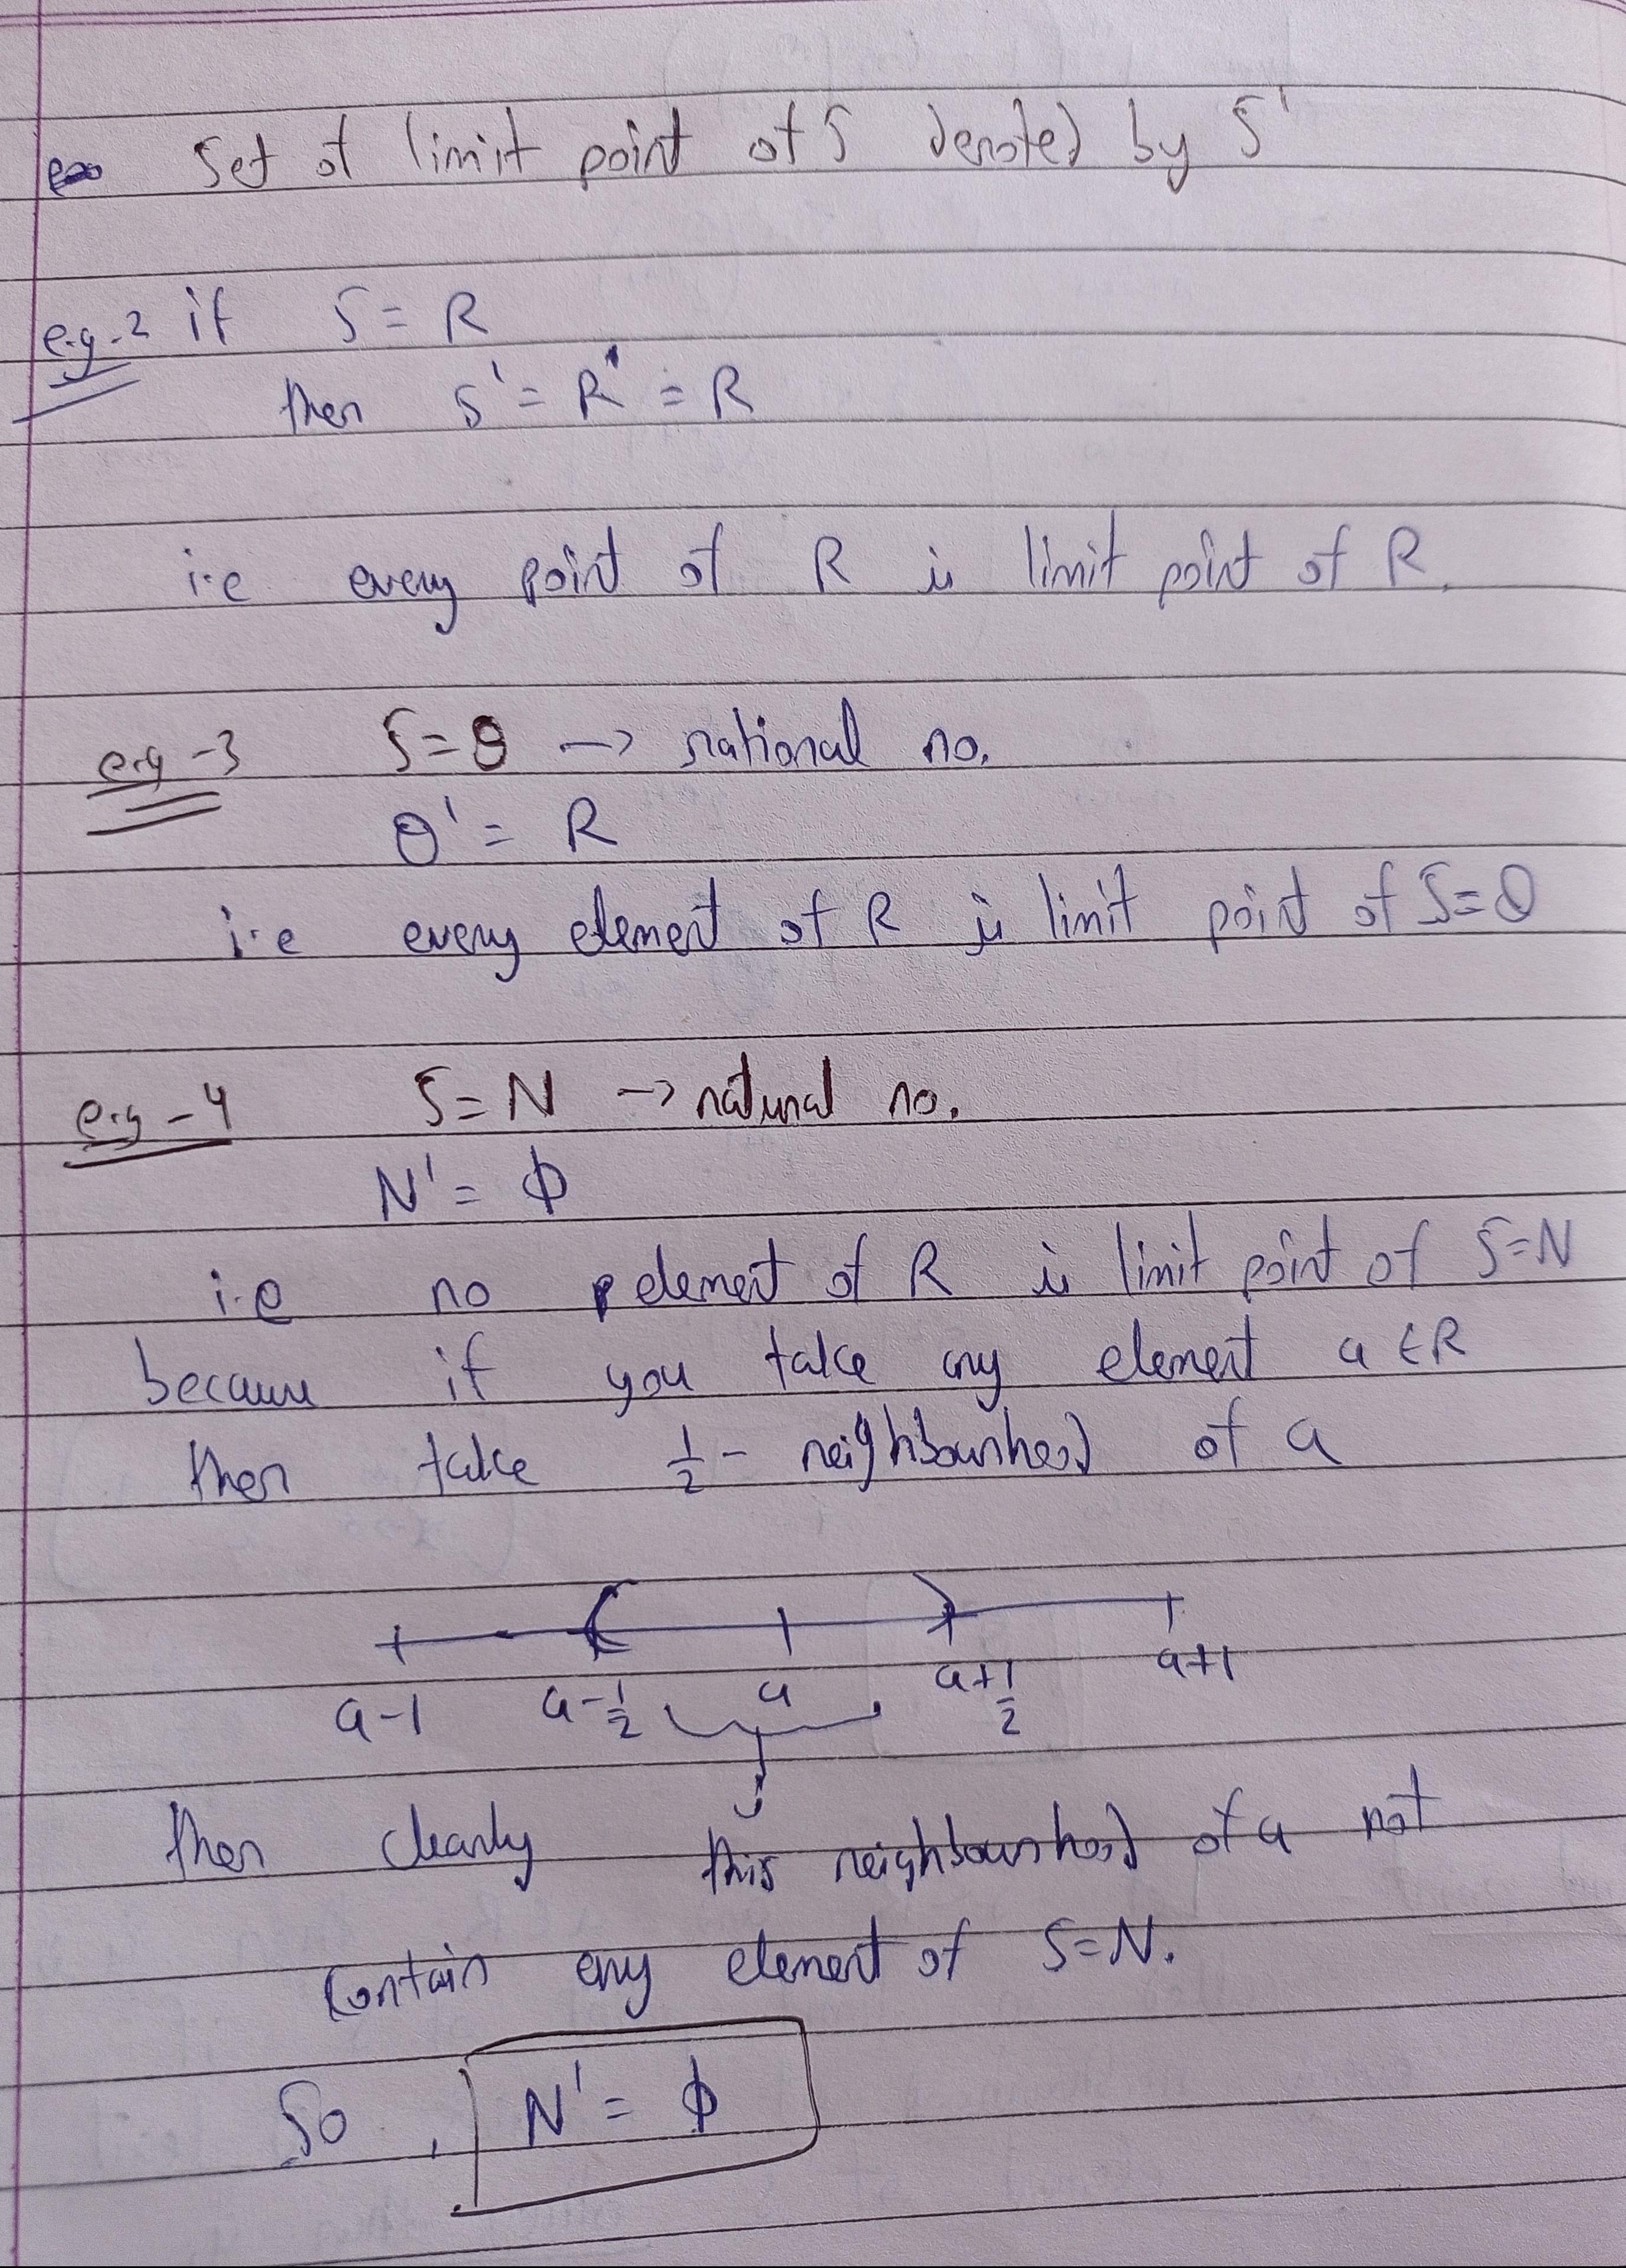 Set of limit point of S denoted by S'
e.g.-2 if S = R
then S' = R' = R
i.e every point of R is limit point of R.
e.g-3 S = Q → rational no.
Q' = R
i.e every element of R is limit point of S=Q
e.g-4 S = N → natural no.
N' = ϕ
i.e no element of R is limit point of S=N
because if you take any element a ∈ R
then take 1/2 - neighbourhood of a
a-1 a-1/2 a a+1/2 a+1
then clearly this neighbourhood of a not
contain any element of S=N.
So, N' = ϕ